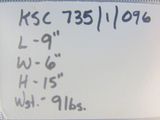 KSC 735/1/096
L - 9"
W - 6"
H - 15"
Wgt. - 9 lbs.